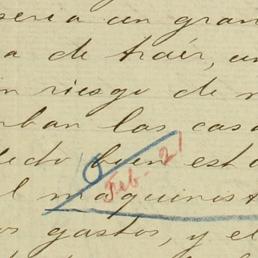 sería un gran
a de traér, un
n riesgo de
ban las cas
bien est
Feb- 21
l maquinist
os gastos, y el